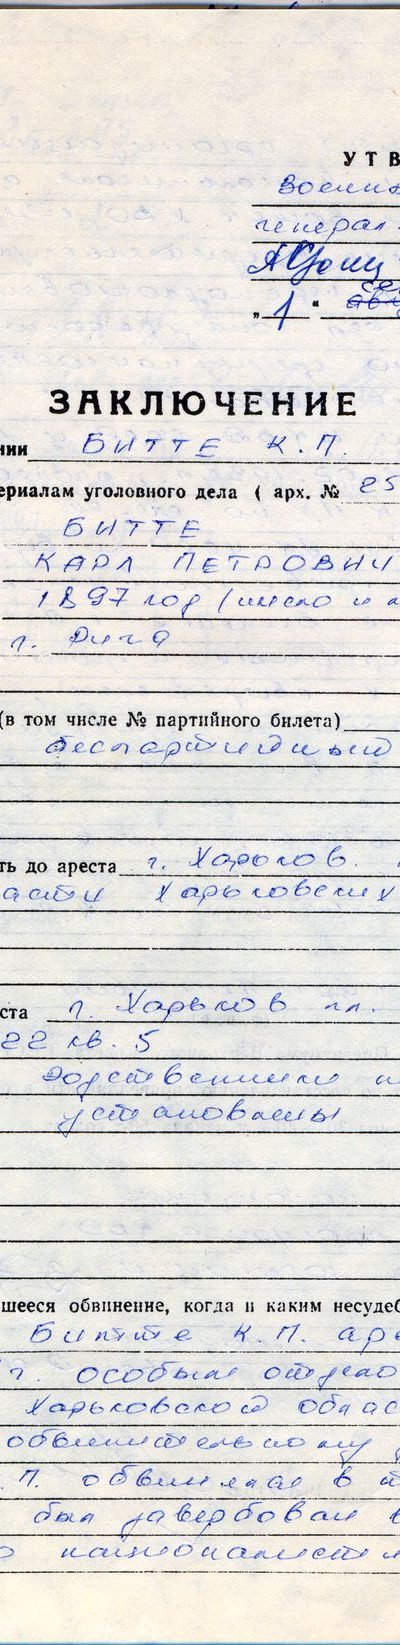 УТВ
Военны
генерал-
„1“
ЗАКЛЮЧЕНИЕ
нии БИТТЕ К.П.
ериалам уголовного дела ( арх. № 25
БИТТЕ
КАРЛ ПЕТРОВИЧ
1897 год (число и м
г. Рига
(в том числе № партийного билета)
беспартийный
ть до ареста г. Харьков.
асти Харьковских
ста г. Харьков пл.
22 кв. 5
Родственники н
установлены
шееся обвинение, когда и каким несудеб
Битте К.П. аре
г. особым отдело
Харьковской облас
обвинительному
.П. обвинялся в т
был завербован в
о националист